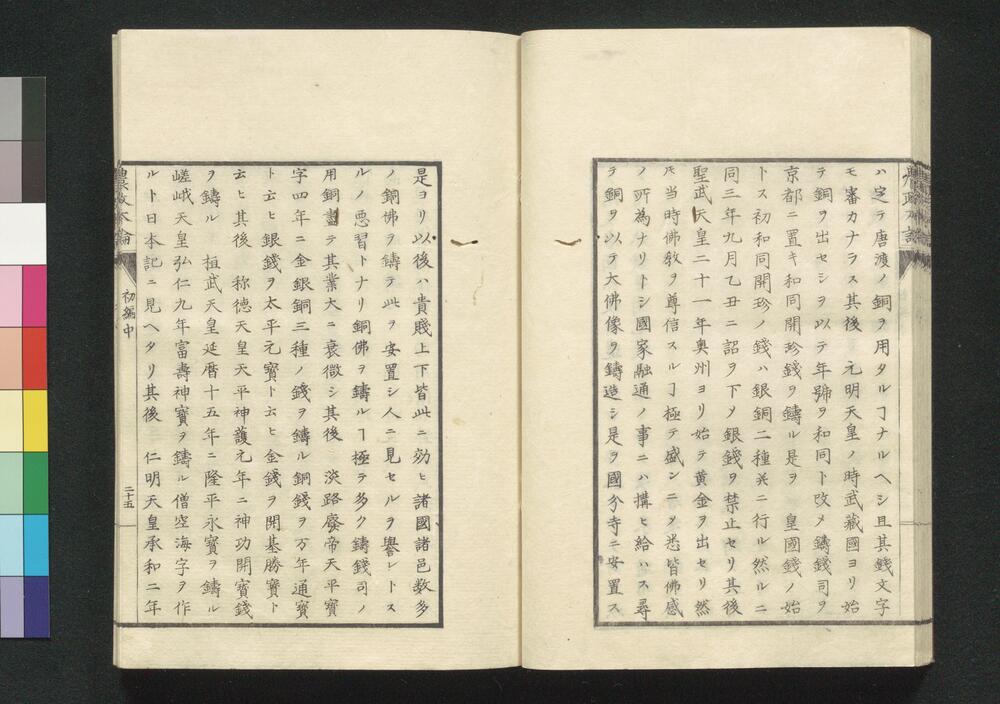 ハ定テ唐渡ノ銅ヲ用タルヿナルヘシ且其錢文字
モ審カナラス其後　元明天皇ノ時武藏國ヨリ始
テ銅ヲ出セシヲ以テ年號ヲ和同ト改メ鑄錢司ヲ
京都ニ置キ和同開珍錢ヲ鑄ル是ヲ　皇國錢ノ始
トス初和同開珍ノ錢ハ銀銅二種共ニ行ル然ルニ
同三年九月乙丑ニ詔ヲ下メ銀錢ヲ禁止セリ其後
聖武天皇二十一年奥州ヨリ始テ黄金ヲ出セリ然
𪜈当時佛敎ヲ尊信スルヿ極テ盛ンニメ悉皆佛感
ノ所為ナリトシ國家融通ノ事ニハ搆ヒ給ハス尋
テ銅ヲ以テ大佛像ヲ鑄造シ是ヲ國分寺ニ安置ス
是ヨリ以後ハ貴賤上下皆此ニ効ヒ諸國諸邑数多
ノ銅佛ヲ鑄テ此ヲ安置シ人ニ見セルヲ譽レトス
ルノ悪習トナリ銅佛ヲ鑄ルヿ極テ多ク鑄錢司ノ
用銅盡テ其業大ニ衰微シ其後　淡路廢帝天平寳
字四年ニ金銀銅三種ノ錢ヲ鑄ル銅錢ヲ万年通寳
ト云ヒ銀錢ヲ太平元寳ト云ヒ金錢ヲ開基勝寳ト
云ヒ其後　称德天皇天平神護元年ニ神功開寳錢
ヲ鑄ル　桓武天皇延暦十五年ニ隆平永寳ヲ鑄ル
嵯峨天皇弘仁九年富壽神寳ヲ鑄ル僧空海字ヲ作
ルト日本記ニ見ヘタリ其後　仁明天皇承和二年
農政本論
初編中
二十五